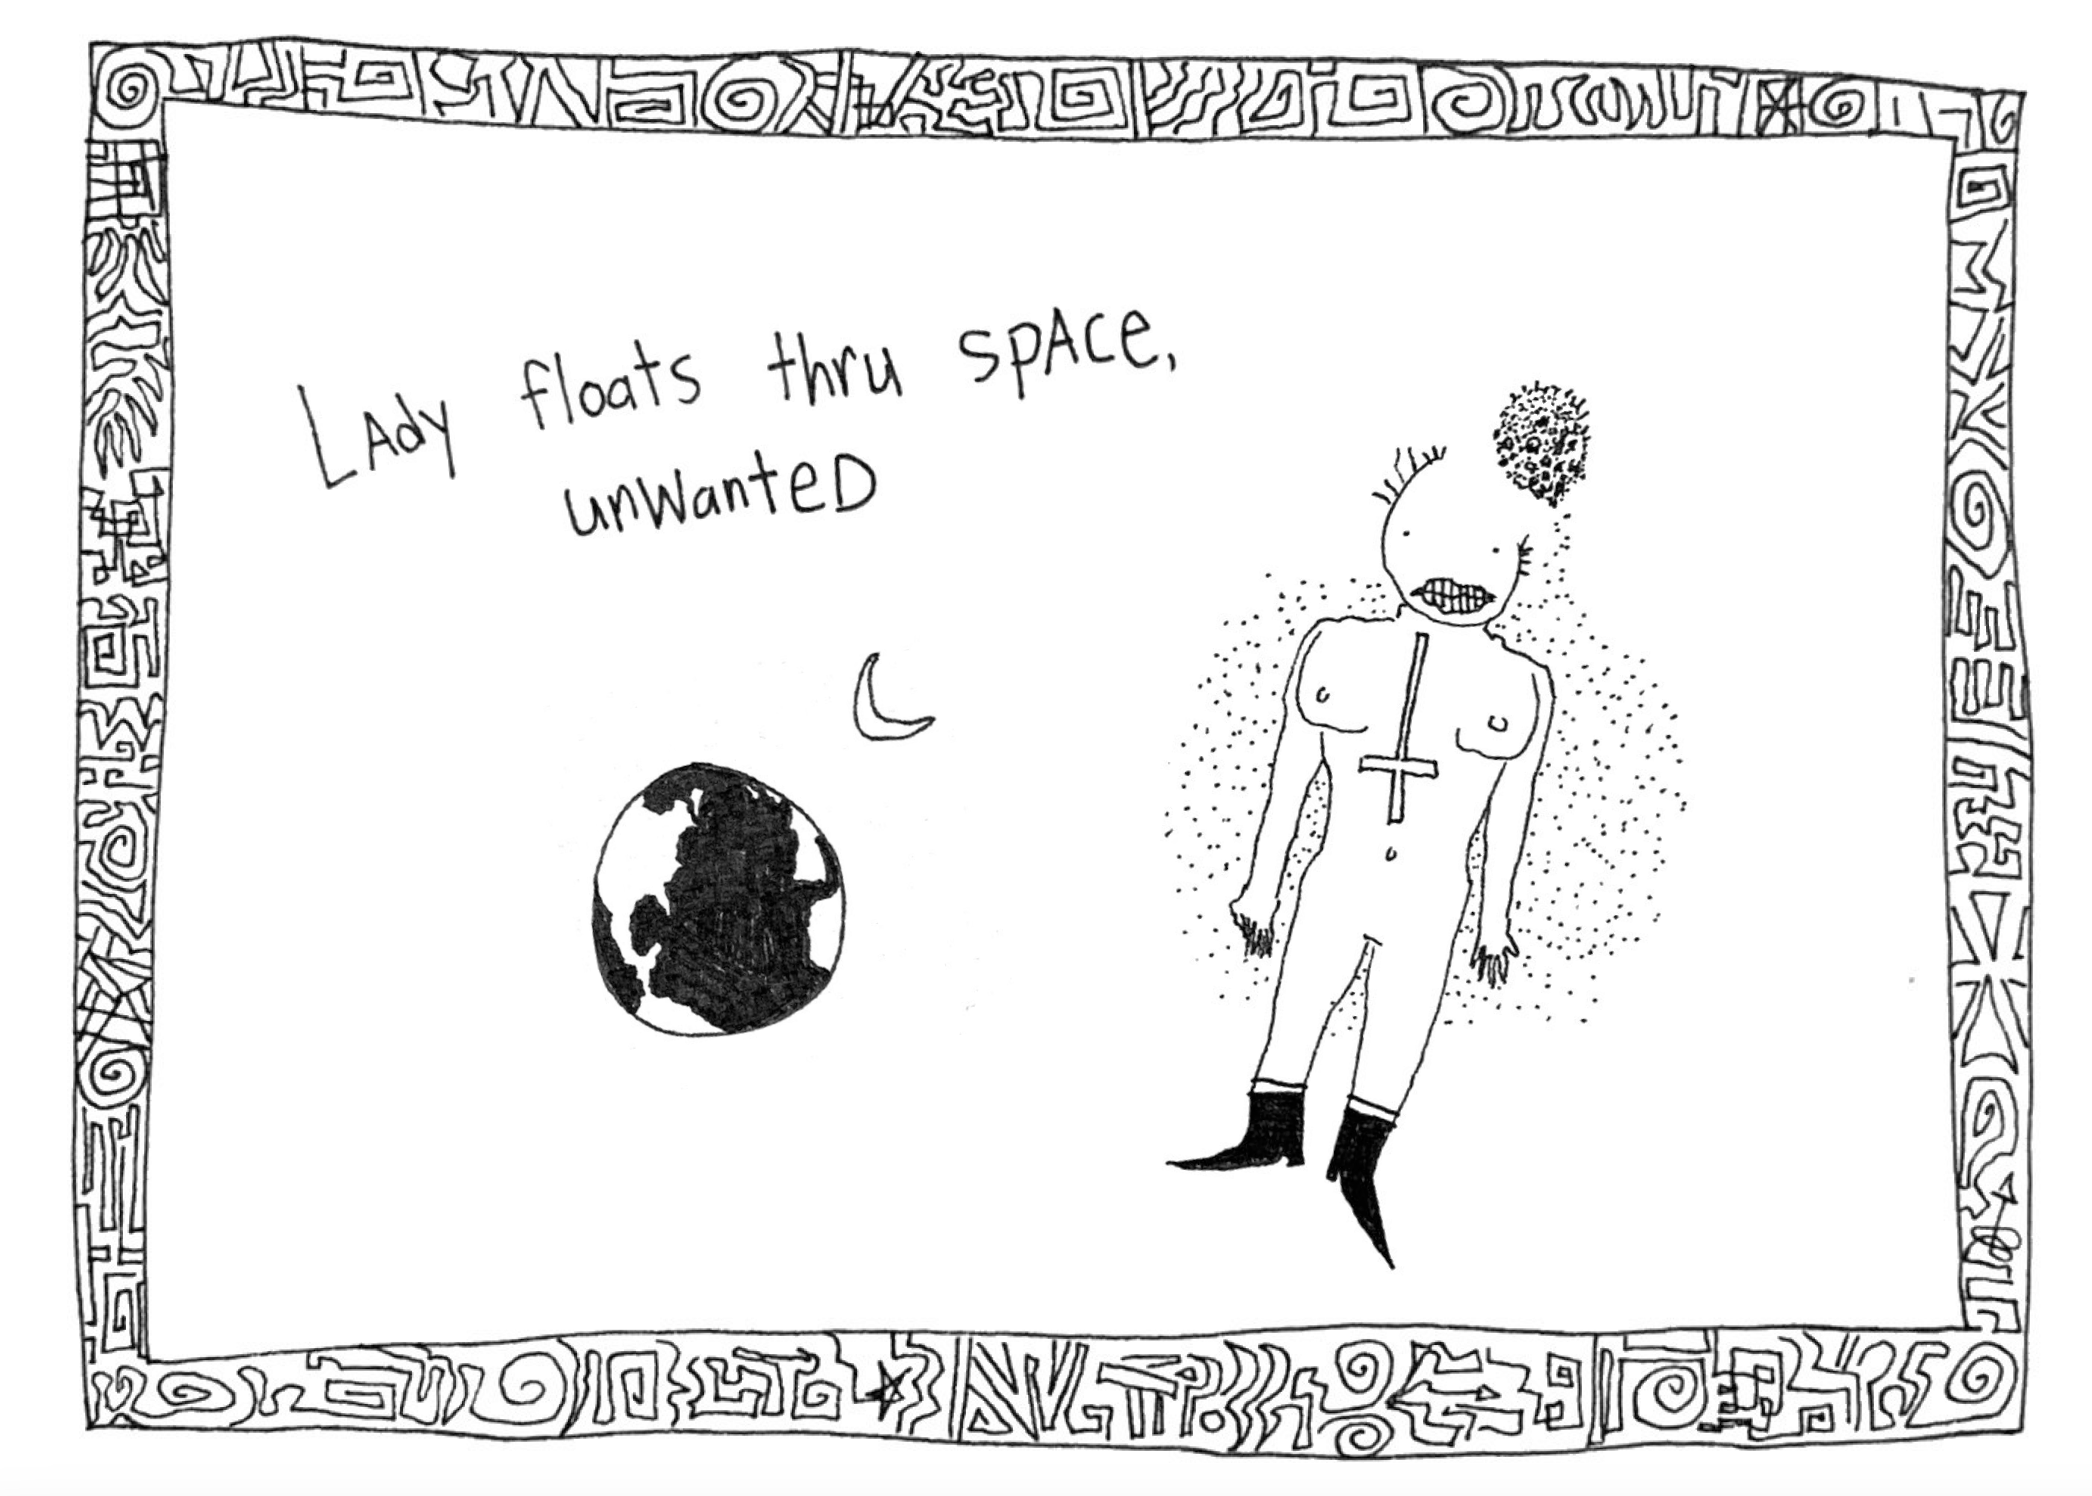 LAdy floats thru spAce,
unWanteD